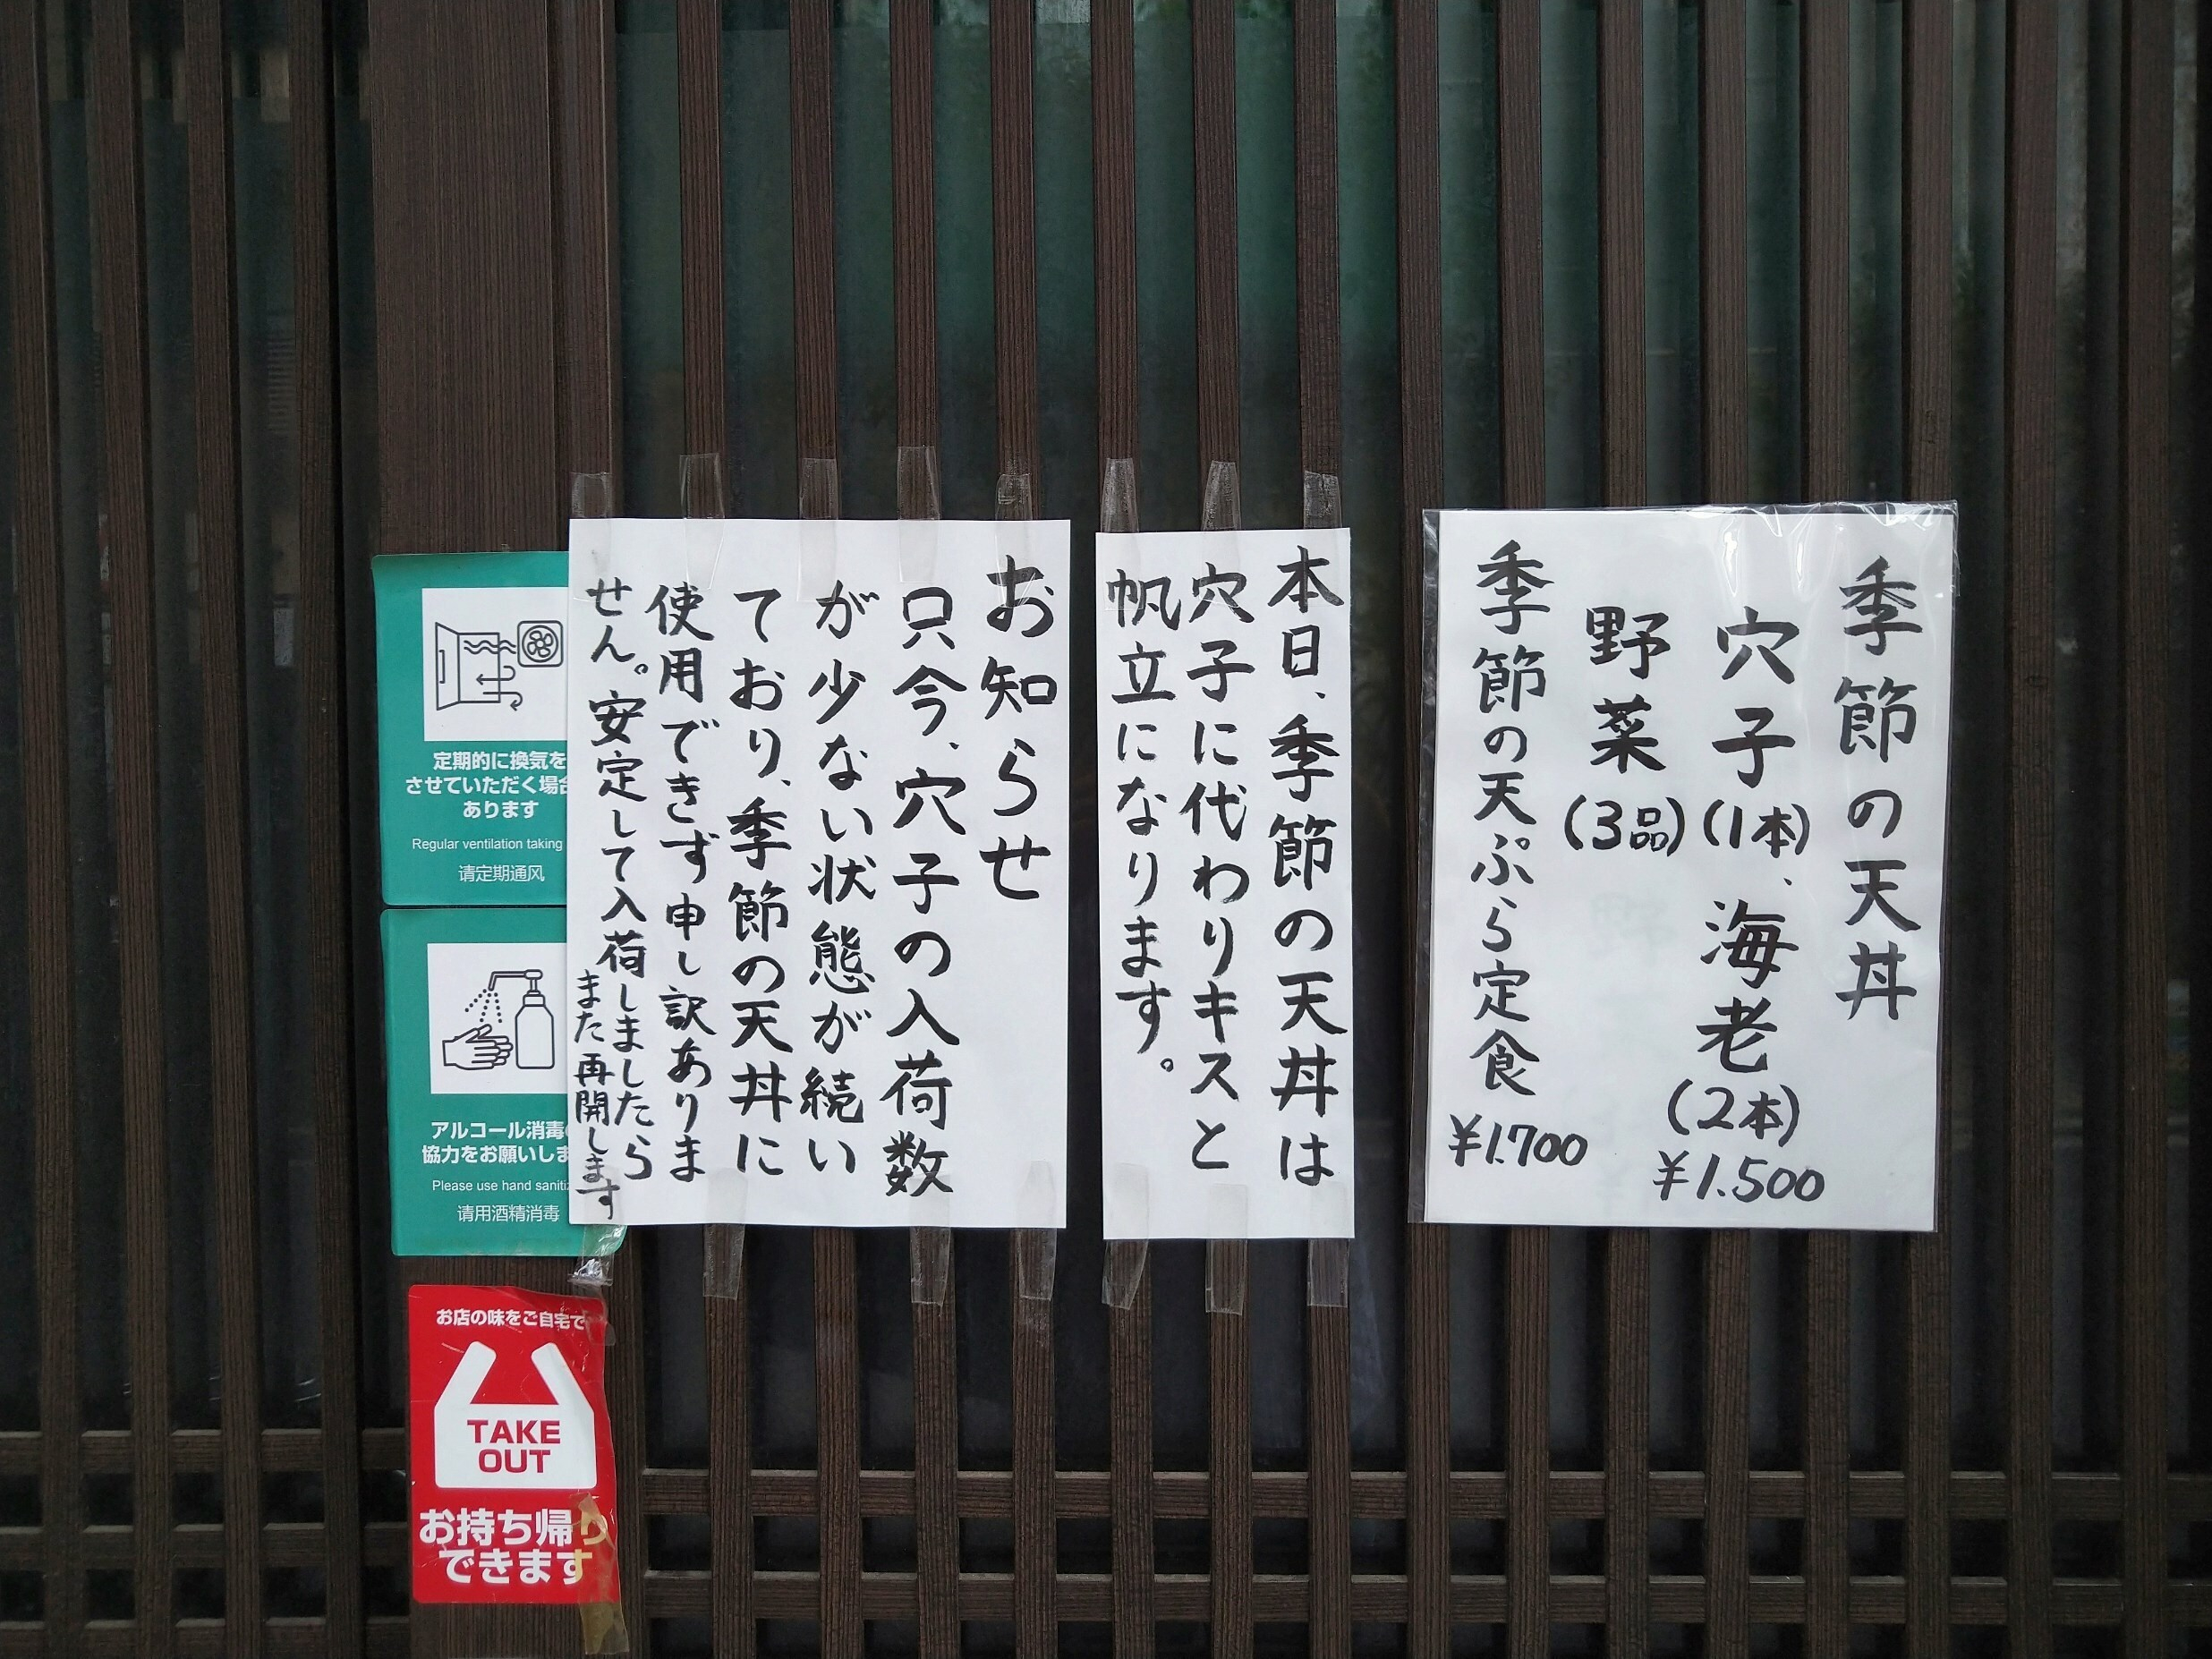 季節の天丼
穴子(1本)、海老(2本)
¥1.500
野菜(3品)
季節の天ぷら定食
¥1.700
本日、季節の天丼は
穴子に代わりキスと
帆立になります。
お知らせ
只今、穴子の入荷数
が少ない状態が続い
ており、季節の天丼に
使用できず申し訳ありま
せん。安定して入荷しましたら
また再開します
定期的に換気を
させていただく場合
あります
Regular ventilation taking
请定期通风
アルコール消毒
協力をお願いしま
Please use hand
请用酒精消毒
お店の味をご自宅で
TAKE
OUT
お持ち帰り
できます